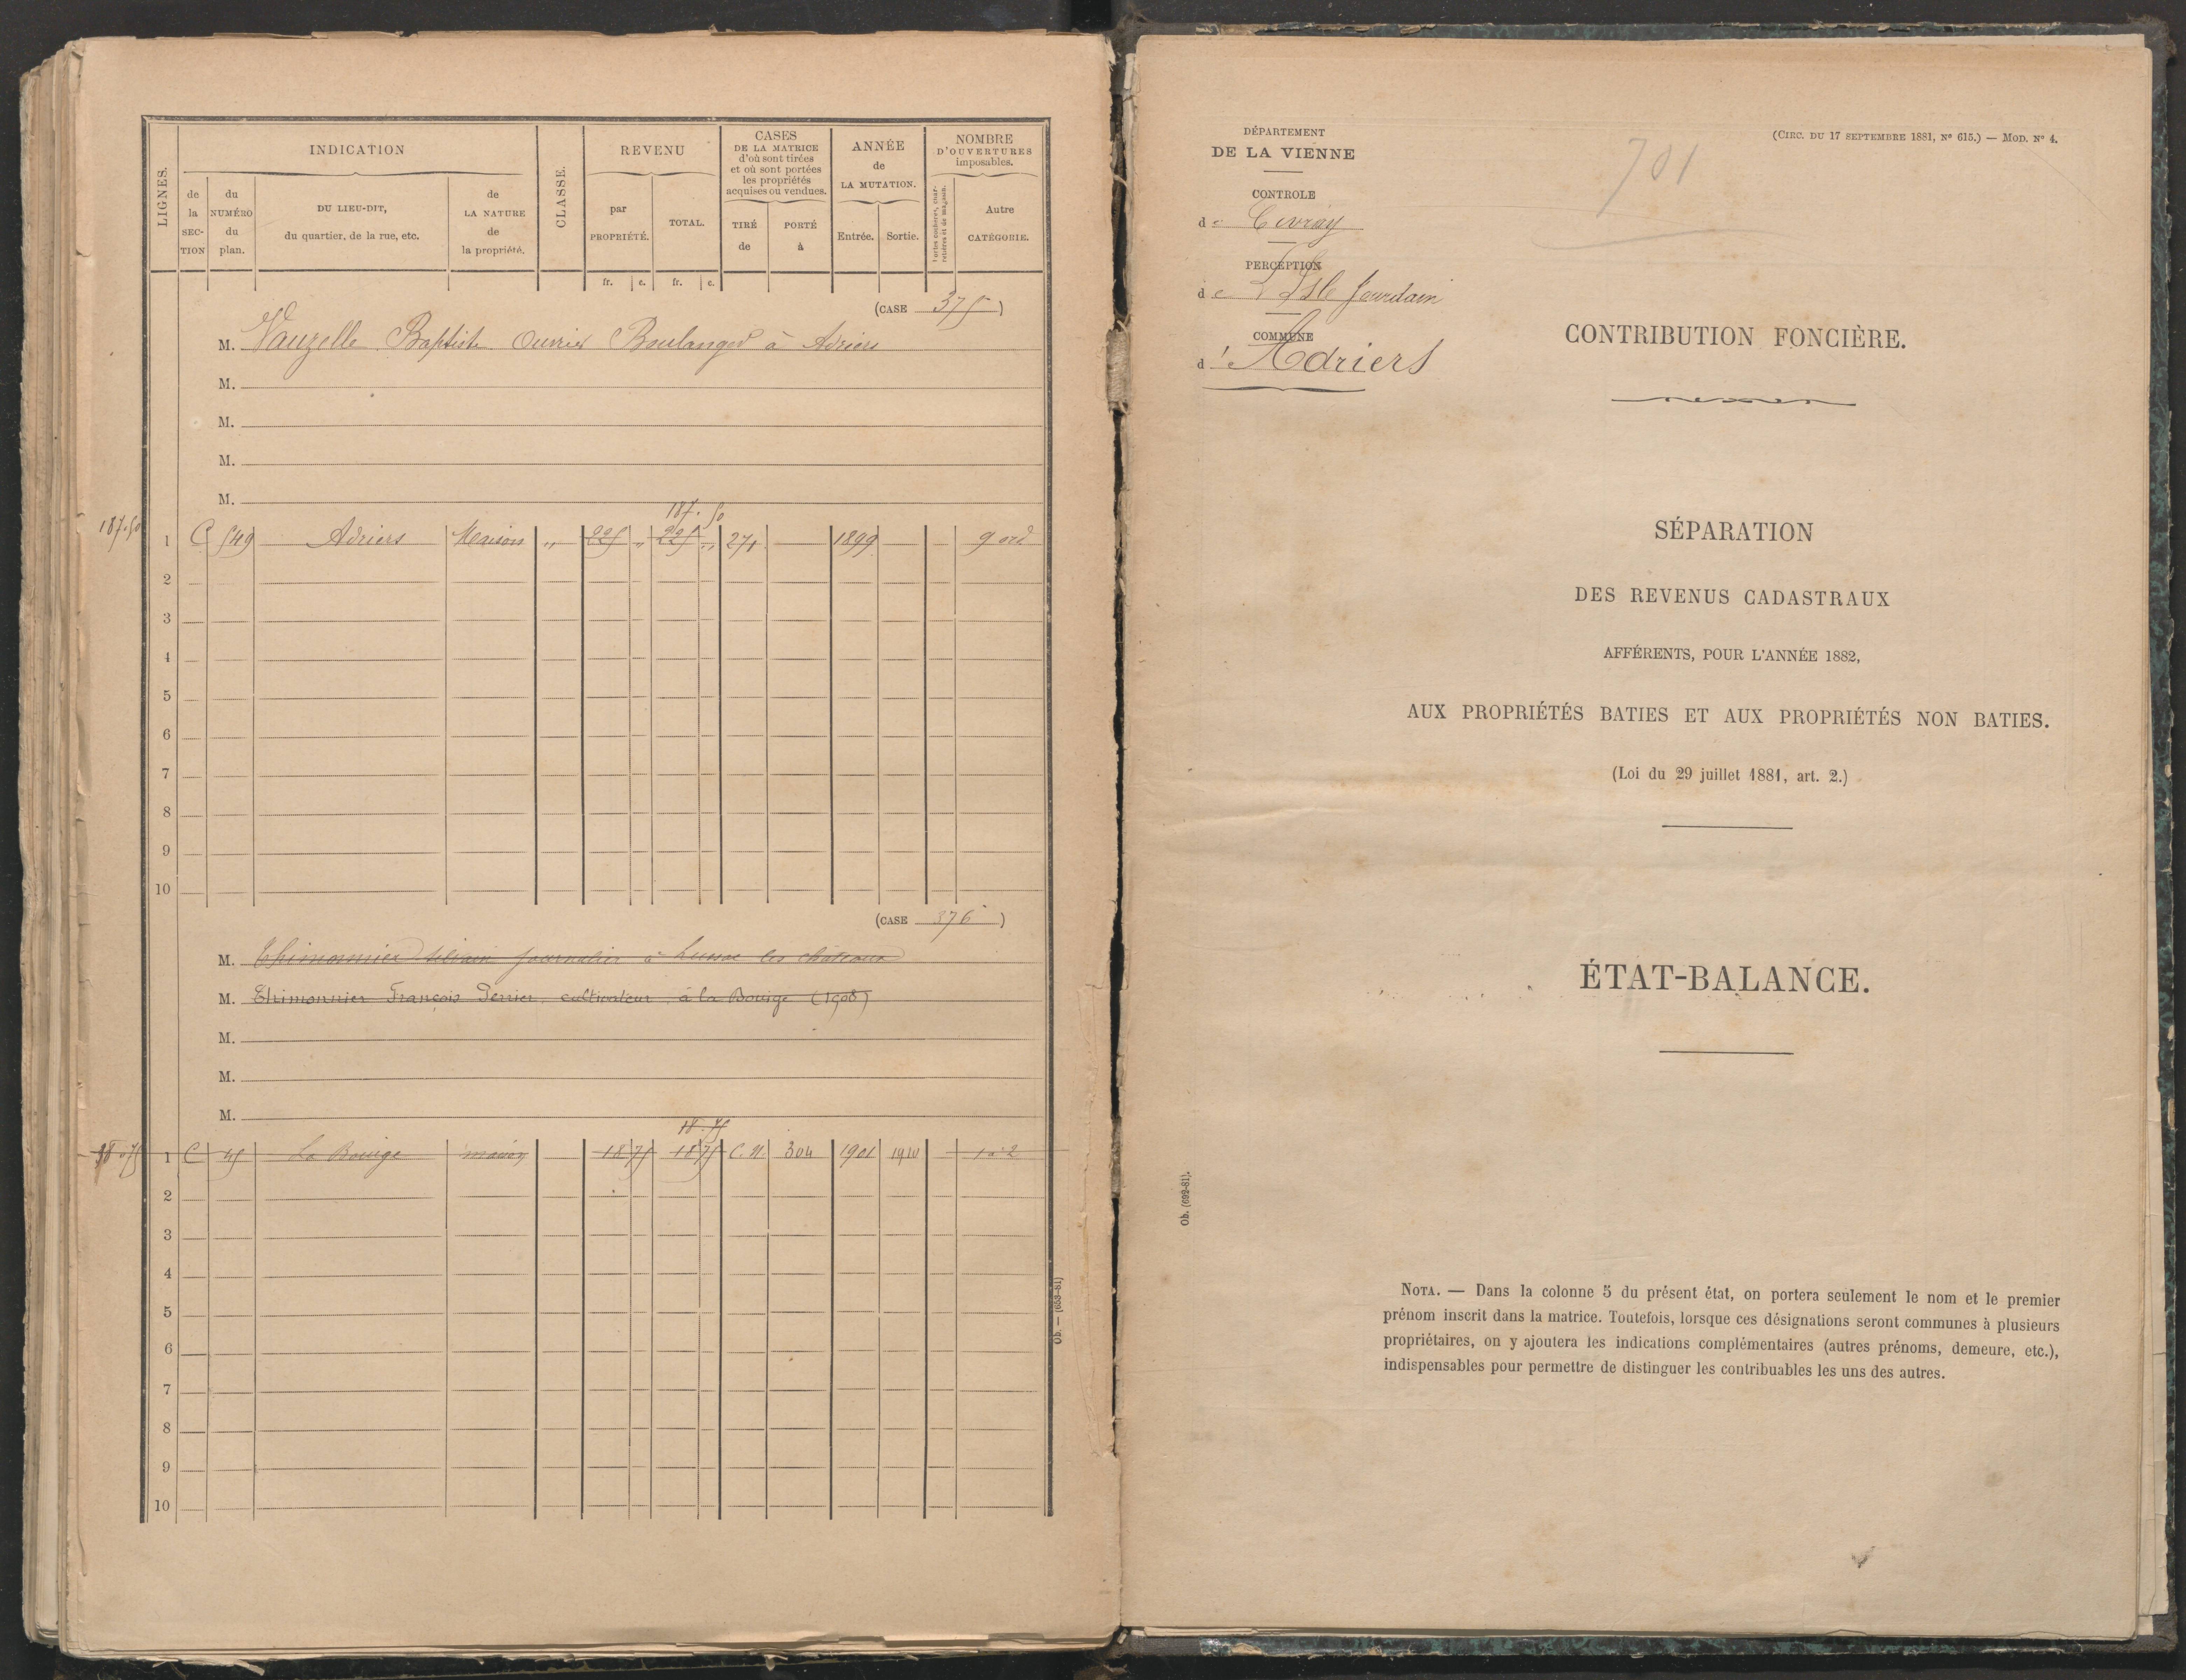 LIGNES.
INDICATION
de la SECTION
du NUMÉRO du plan.
DU LIEU-DIT, du quartier, de la rue, etc.
de LA NATURE de la propriété.
CLASSE.
REVENU
par PROPRIÉTÉ.
TOTAL.
CASES DE LA MATRICE d'où sont tirées et où sont portées les propriétés acquises ou vendues.
TIRÉ de
PORTÉ à
ANNÉE de LA MUTATION.
Entrée.
Sortie.
NOMBRE D'OUVERTURES imposables.
Portes cochères, charretières et de magasin.
Autre CATÉGORIE.
fr. c. fr. c.
(CASE 375)
M. Vauzelle Baptiste Ouvrier Boulanger à Adriers
M.
M.
M.
M.
187.50
187.50 1 C 549 Adriers Maison „ 225 „ 225 „ 271 1899 9 ord
2
3
4
5
6
7
8
9
10
(CASE 376)
M. Thimonnier Silvain journalier à Lussac les châteaux
M. Thimonnier François Perrier cultivateur à la Bouige (1908)
M.
M.
M.
18.75
18.75 1 C 45 La Bouige maison 18 75 18 75 C.N. 304 1901 1910 1 à 2
2
3
4
5
6
7
8
9
10
Ob. — (653-81)
DÉPARTEMENT
DE LA VIENNE
(CIRC. DU 17 SEPTEMBRE 1881, Nº 615.) — MOD. Nº 4.
701
CONTROLE
de Civray
PERCEPTION
de L'Isle Jourdain
COMMUNE
d' Adriers
CONTRIBUTION FONCIÈRE.
SÉPARATION
DES REVENUS CADASTRAUX
AFFÉRENTS, POUR L'ANNÉE 1882,
AUX PROPRIÉTÉS BATIES ET AUX PROPRIÉTÉS NON BATIES.
(Loi du 29 juillet 1881, art. 2.)
ÉTAT-BALANCE.
Ob. (692-81).
NOTA. — Dans la colonne 5 du présent état, on portera seulement le nom et le premier
prénom inscrit dans la matrice. Toutefois, lorsque ces désignations seront communes à plusieurs
propriétaires, on y ajoutera les indications complémentaires (autres prénoms, demeure, etc.),
indispensables pour permettre de distinguer les contribuables les uns des autres.